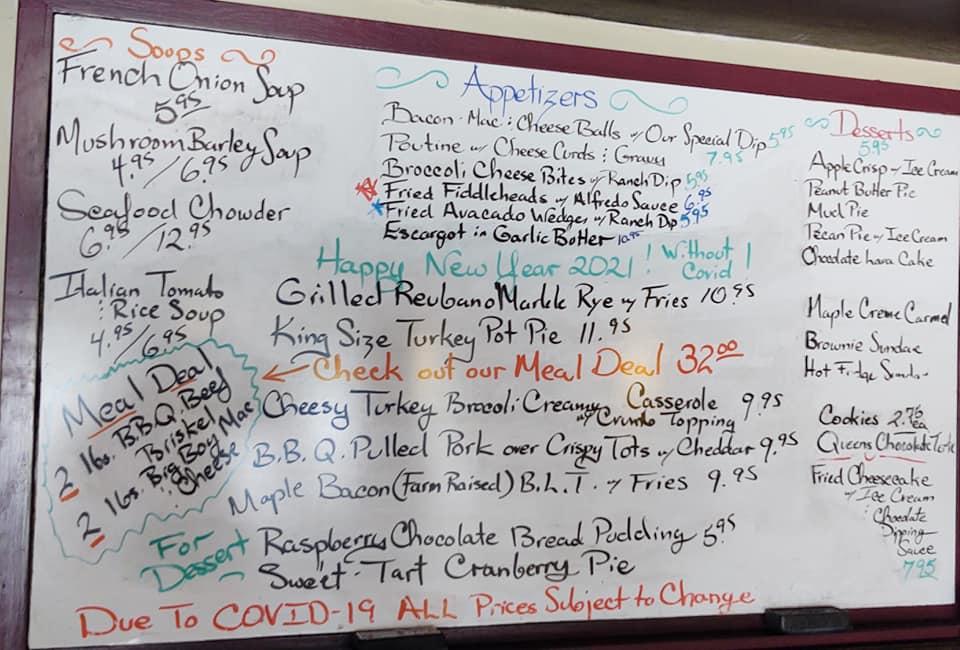 Soups
French Onion Soup
5.95
Mushroom Barley Soup
4.95 / 6.95
Seafood Chowder
6.95 / 12.95
Italian Tomato
: Rice Soup
4.95 / 6.95
Meal Deal
2 lbs. B.B.Q. Beef
Brisket
2 lbs. Big Boy Mac
: Cheese
Appetizers
Bacon Mac : Cheese Balls w/ Our Special Dip 5.95
Poutine w/ Cheese Curds : Gravy 7.95
Broccoli Cheese Bites w/ Ranch Dip 5.95
Fried Fiddleheads w/ Alfredo Sauce 6.95
Fried Avacado Wedges w/ Ranch Dip 5.95
Escargot in Garlic Butter 10.95
Happy New Year 2021! Without Covid!
Grilled Reuban on Marble Rye w/ Fries 10.95
King Size Turkey Pot Pie 11.95
← Check out our Meal Deal 32.00
Cheesy Turkey Brocoli Creamy Casserole 9.95
w/ Crumb Topping
B.B.Q. Pulled Pork over Crispy Tots w/ Cheddar 9.95
Maple Bacon (Farm Raised) B.L.T. w/ Fries 9.95
For Dessert
Raspberry Chocolate Bread Pudding 5.95
Sweet-Tart Cranberry Pie
Due To COVID-19 ALL Prices Subject to Change
Desserts
5.95
Apple Crisp w/ Ice Cream
Peanut Butter Pie
Mud Pie
Pecan Pie w/ Ice Cream
Chocolate Lava Cake
Maple Creme Carmel
Brownie Sundae
Hot Fudge Sundae
Cookies 2.75 ea
Queens Chocolate Torte
Fried Cheesecake
w/ Ice Cream
: Chocolate
Dipping
Sauce
7.95